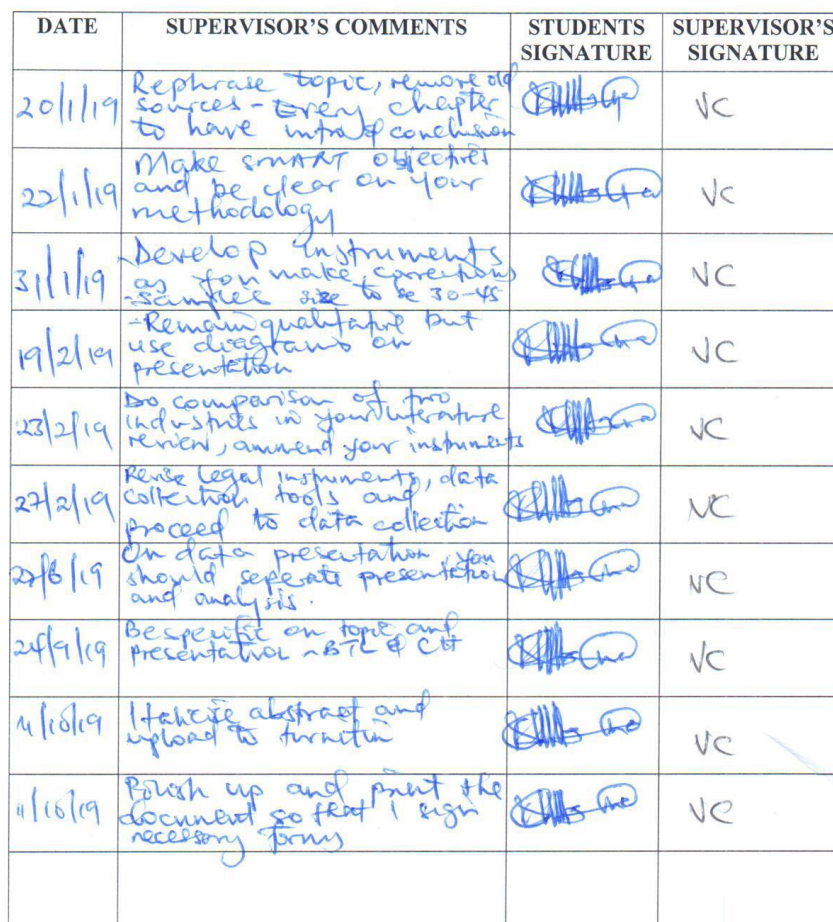 DATE SUPERVISOR'S COMMENTS STUDENTS SIGNATURE SUPERVISOR'S SIGNATURE
20/1/19 Rephrase topic, remove old
sources - Every chapter
to have intro & conclusion
VC
22/1/19 Make SMART objectives
and be clear on your
methodology
VC
31/1/19 -Develop instruments
as you make corrections
-samples size to be 30-45
VC
19/2/19 -Remain qualitative but
use diagrams on
presentation
VC
23/2/19 Do comparison of two
industries in your literature
review, ammend your instruments
VC
27/2/19 Revise legal instruments, data
collection tools and
proceed to data collection
VC
On data presentation, you
should seperate presentation
and analysis.
VC
24/9/19 Be specific on topic and
presentation - BTL &
VC
11/10/19 Italicise abstract and
upload to turnitin
VC
11/10/19 Polish up and print the
document so that I sign
necessary forms
VC